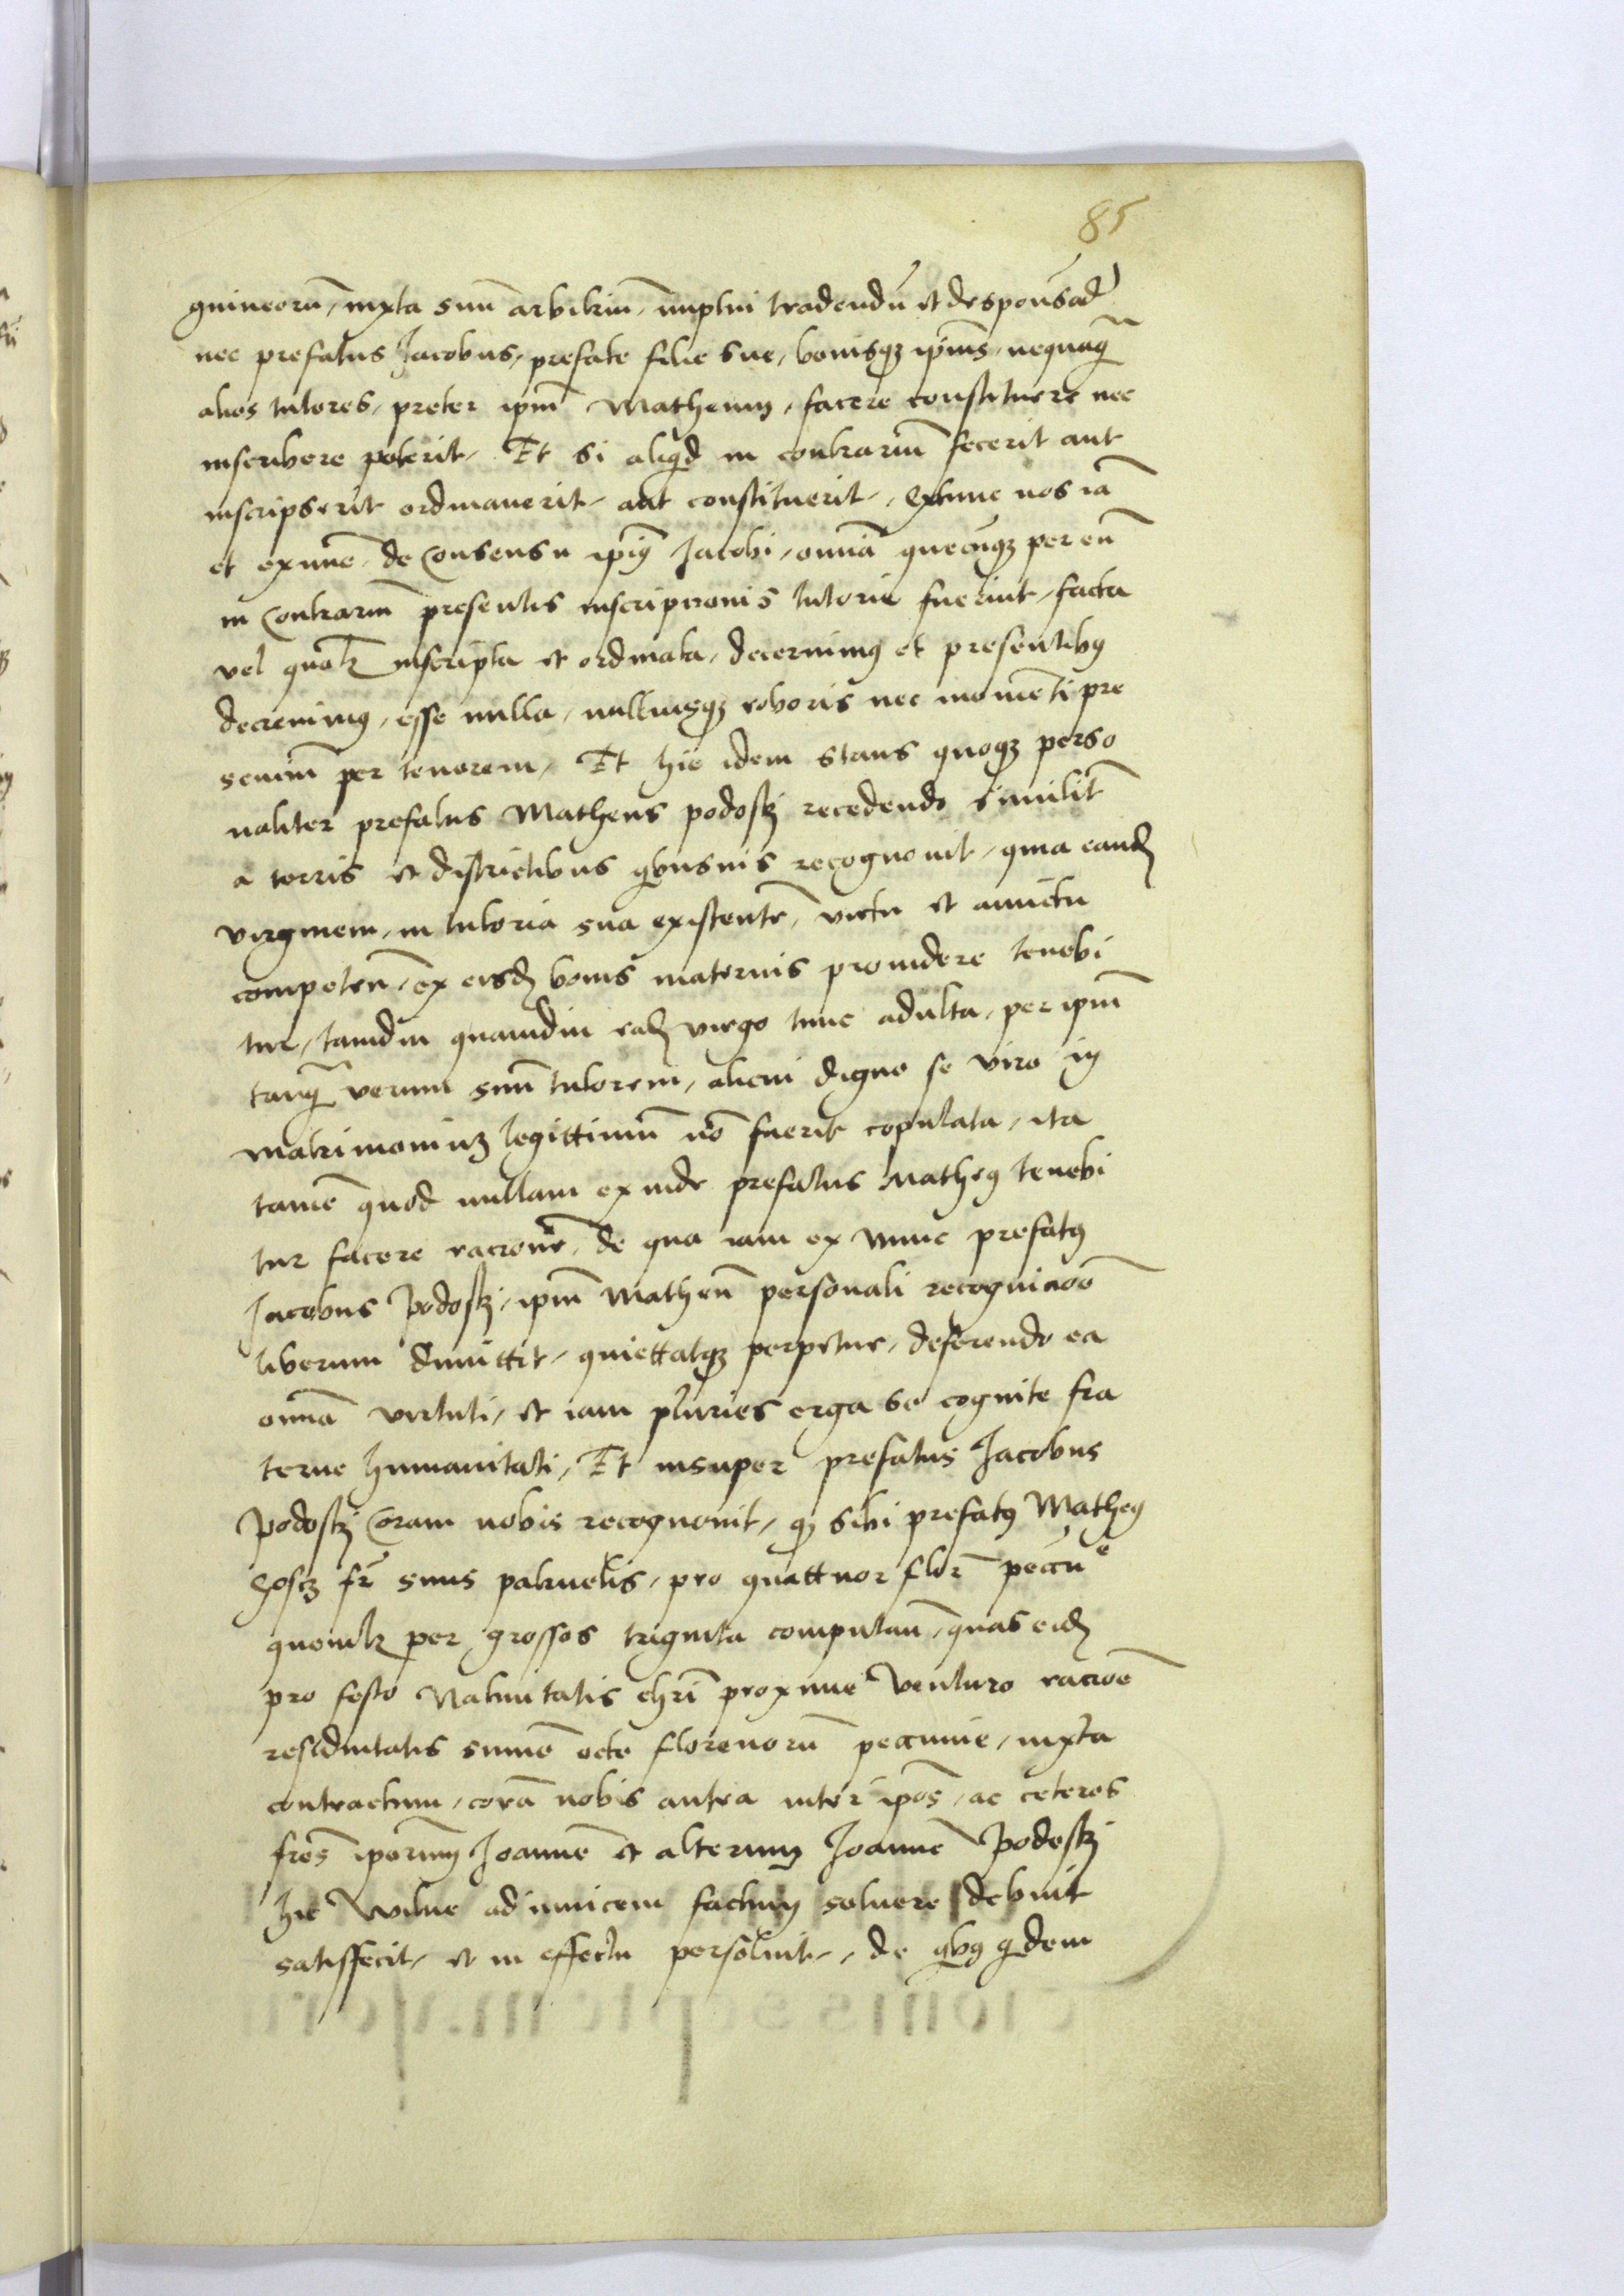 85
guineorū, iuxta suū arbitriū, nuptui tradendū et desponsad
nec prefatus Jacobus, prefate filie sue, bonisqz ipius, nequaq̄
alios tutores, preter ipm̄ Matheum, facere constituere nec
inscribere poterit, Et si aliqd in contrariū fecerit aut
inscripserit ordinauerit, aut constituerit, Extunc nos iā
et exnunc, de Consensu ipiꝰ Jacobi, omniā quecūqz per eū
in Contrariū presentis inscripcionis tutorie fuerint, facta
vel qualr̄ inscripta et ordinata, decernimꝰ et presentibꝰ
decreuimꝰ, esse nulla, nulliusqz roboris nec momēti pre
senciū per tenorem, Et hic idem stans quoqz perso
naliter prefatus Matheus podoskj recedendo similit̄
a terris et districtibus qbusuis recognouit, quia eand
virginem, in tutoria sua existentē, victu et amictu
competen̄, ex eisd bonis maternis prouidere tenebi
tur, tamdiu quamdiu ead virgo tunc adulta, per ipm̄
tanq̄ verum suū tutorem, alicui digno se viro in
matrimoniuz legittimū nō fuerit copulata, ita
tamē quod nullam exinde prefatus Matheꝰ tenebi
tur facere racionē, de qua iam ex nunc prefatꝰ
Jacobus Podoskj, ipm̄ Matheū personali recognicioē
liberum dimittit, quiettatqz perpetue, deferendo ea
omnā virtuti, et iam pluries erga se cognite fra
terne humanitati, Et insuper prefatus Jacobus
Podoskj Coram nobis recognouit, qz sibi prefatꝰ Matheꝰ
fr̄ suus patruelis, pro quattuor flor̄ pecūe
quemlr̄ per grossos triginta computan̄, quas eid
pro festo Natiuitatis chrī proxime Venturo racioē
residuitatis summe octo florenorū peccunie, iuxta
contractum, corā nobis antea inter ipos̄, ac ceteros
fres̄ iporum Joannē et alterum Joannē Podoskj
hic Wilne adinuicem factum soluere debuit
satisfecit, et in effectu persoluit, de qbꝰ qdem